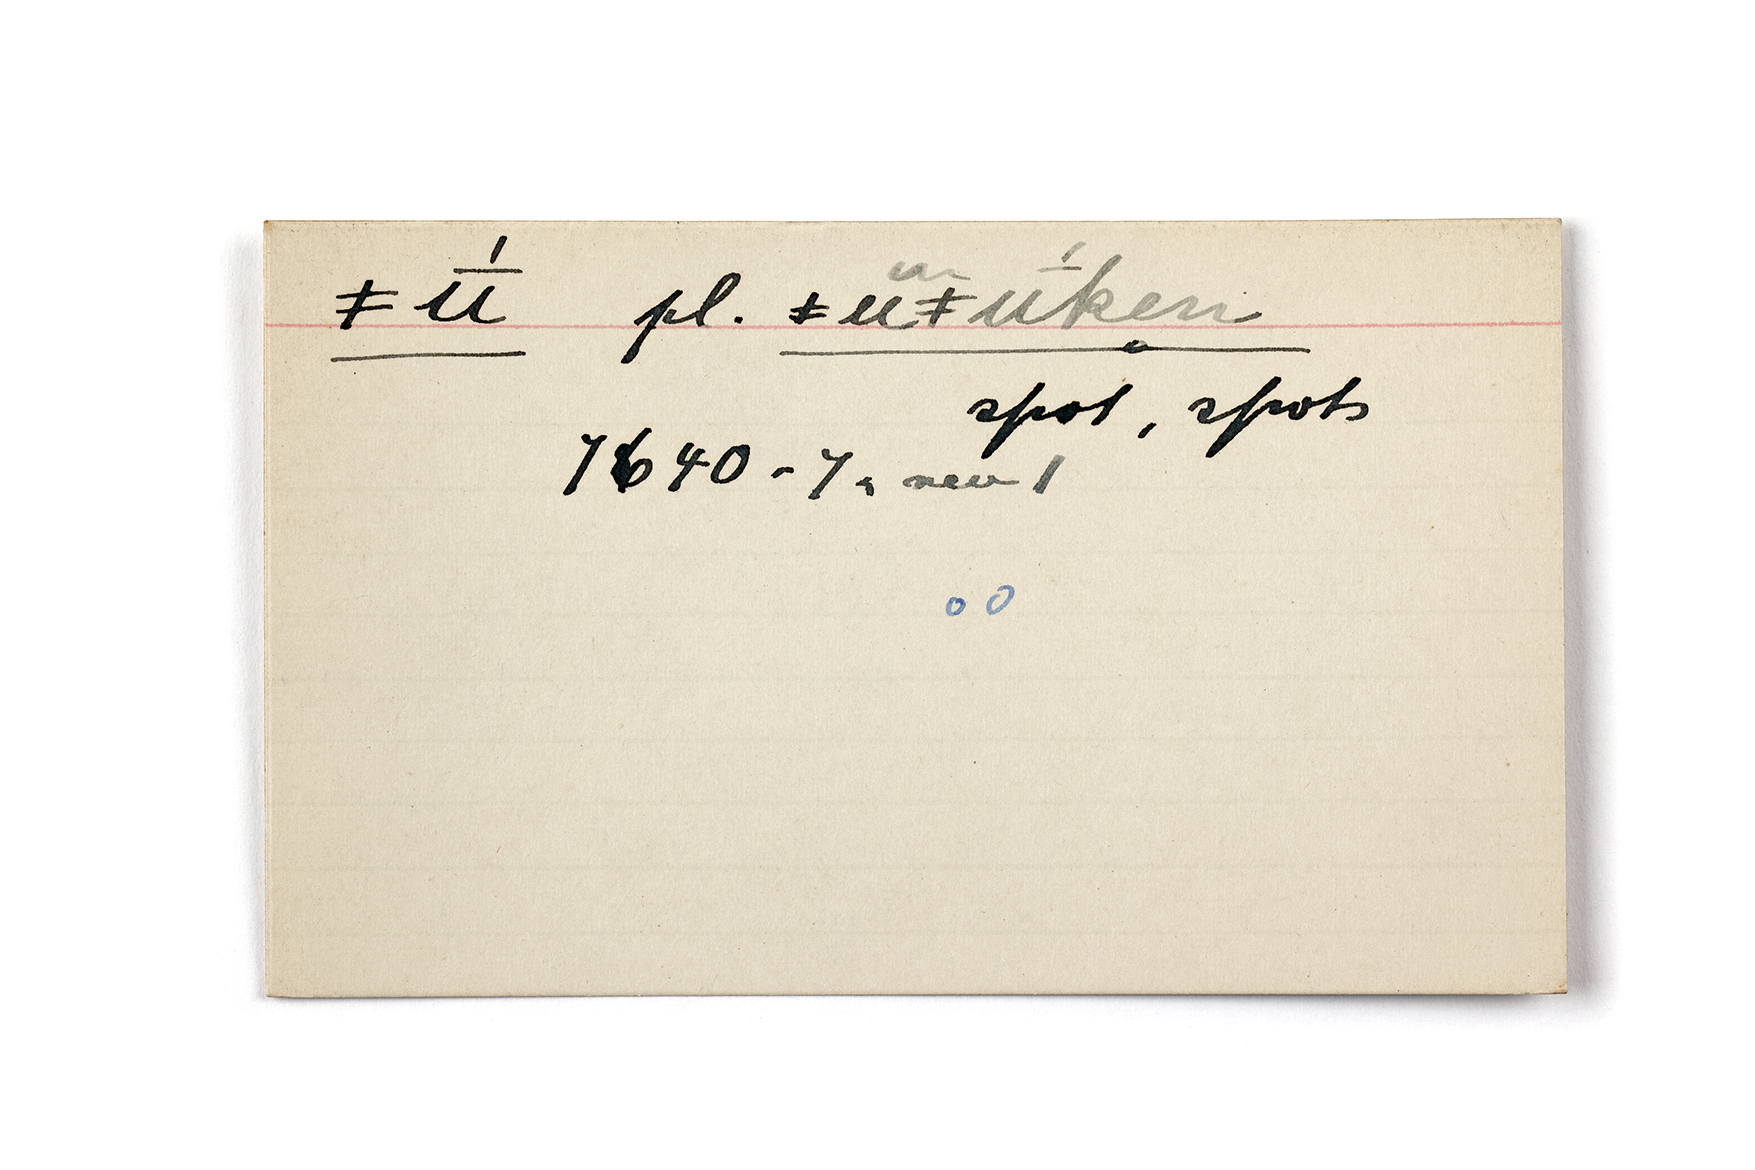 ǂū́ pl. ǂuǂū́ken
spot, spots
7640-7, rev 1
oo